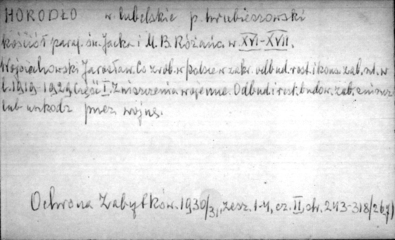 HORODŁO w. lubelskie p. hrubieszowski
kościół paraf. św. Jacka i M.B. Różańc. w. XVI-XVII.
Wojciechowski Jarosław. Co zrob. w Polsce w zakr. odbud. rest. i kons. zab. szt. w
l. 1919-1929. Część I. Zniszczenia wojenne. Odbud. i rest. budow. zab. zniszcz.
lub uszkodz. przez wojnę.
Ochrona Zabytków. 1930/31, zesz. 1-4, cz. II, str. 243-318/267/